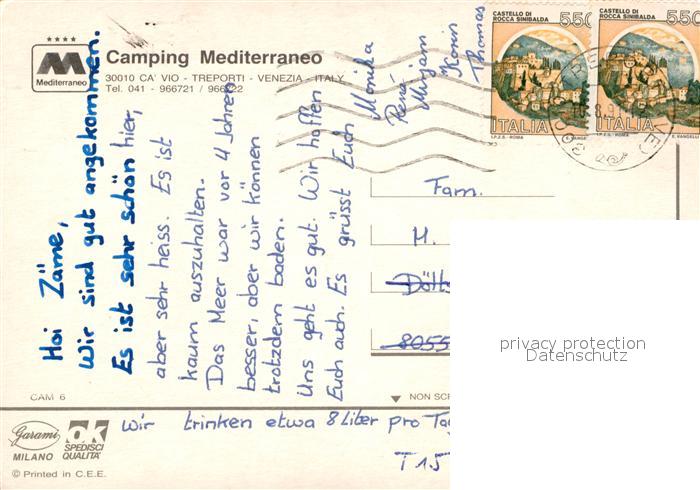 ★★★★
M
Mediterraneo
Camping Mediterraneo
30010 CA' VIO - TREPORTI - VENEZIA - ITALY
Tel. 041 - 966721 / 966722
CASTELLO DI
ROCCA SINIBALDA
550
ITALIA
I.P.Z.S. - ROMA
CASTELLO DI
ROCCA SINIBALDA
550
ITALIA
I.P.Z.S. - ROMA
E. VANGELLI
Hoi Zäme,
Wir sind gut angekommen.
Es ist sehr schön hier,
aber sehr heiss. Es ist
kaum auszuhalten.
Das Meer war vor 4 Jahren
besser, aber wir können
trotzdem baden.
Uns geht es gut. Wir hoffen
Euch auch. Es grüsst Euch
Monika
René
Mirjam
Thomas
Fam.
M.
8055
privacy protection
Datenschutz
CAM 6
NON SCR
wir trinken etwa 8 Liter pro Tag
T 15
Garami
MILANO
OK
SPEDISCI
QUALITÀ
© Printed in C.E.E.